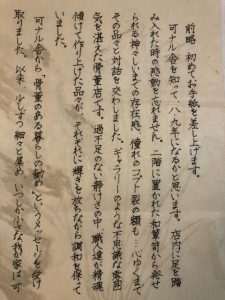 前略 初めてお手紙を差し上げます。
可ナル舎を知って、八、九年になるかと思います。店内に足を踏
み入れた時の感動を忘れません。二階に置かれた和箪笥から発せ
られる神々しいまでの存在感、憧れのコプト裂の額も…心ゆくまで
その品々と対話を交わしました。ギャラリーのような不思議な雰囲
気を湛えた骨董店です。過不足のない静けさの中、職人達が精魂
傾けて作り上げた品々が、それぞれに輝きを放ちながら調和を保って
いました。
可ナル舎から「骨董のある暮らしの勧め」というメッセージを受け
取りました。以来、少しずつ細々と集め、いつしか小さな我が家は可